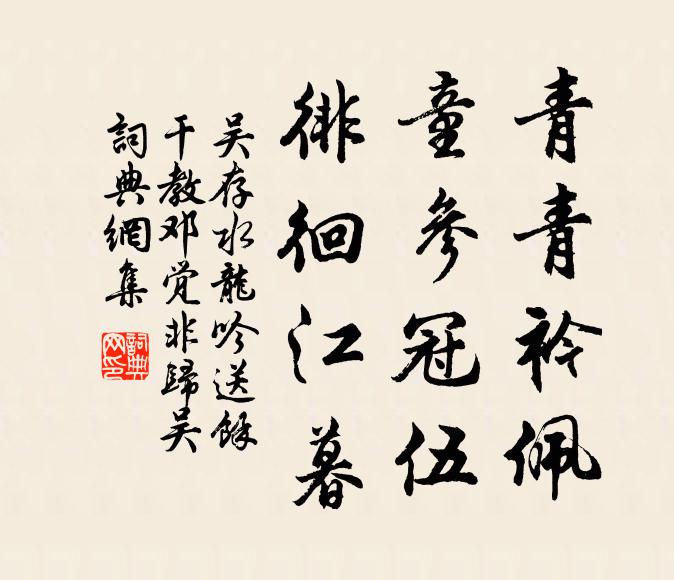 青青衿佩
童參冠伍
徘徊江暮
吴存水龍吟送餘
干教邓觉非歸吴
詞典網集
詞典網印